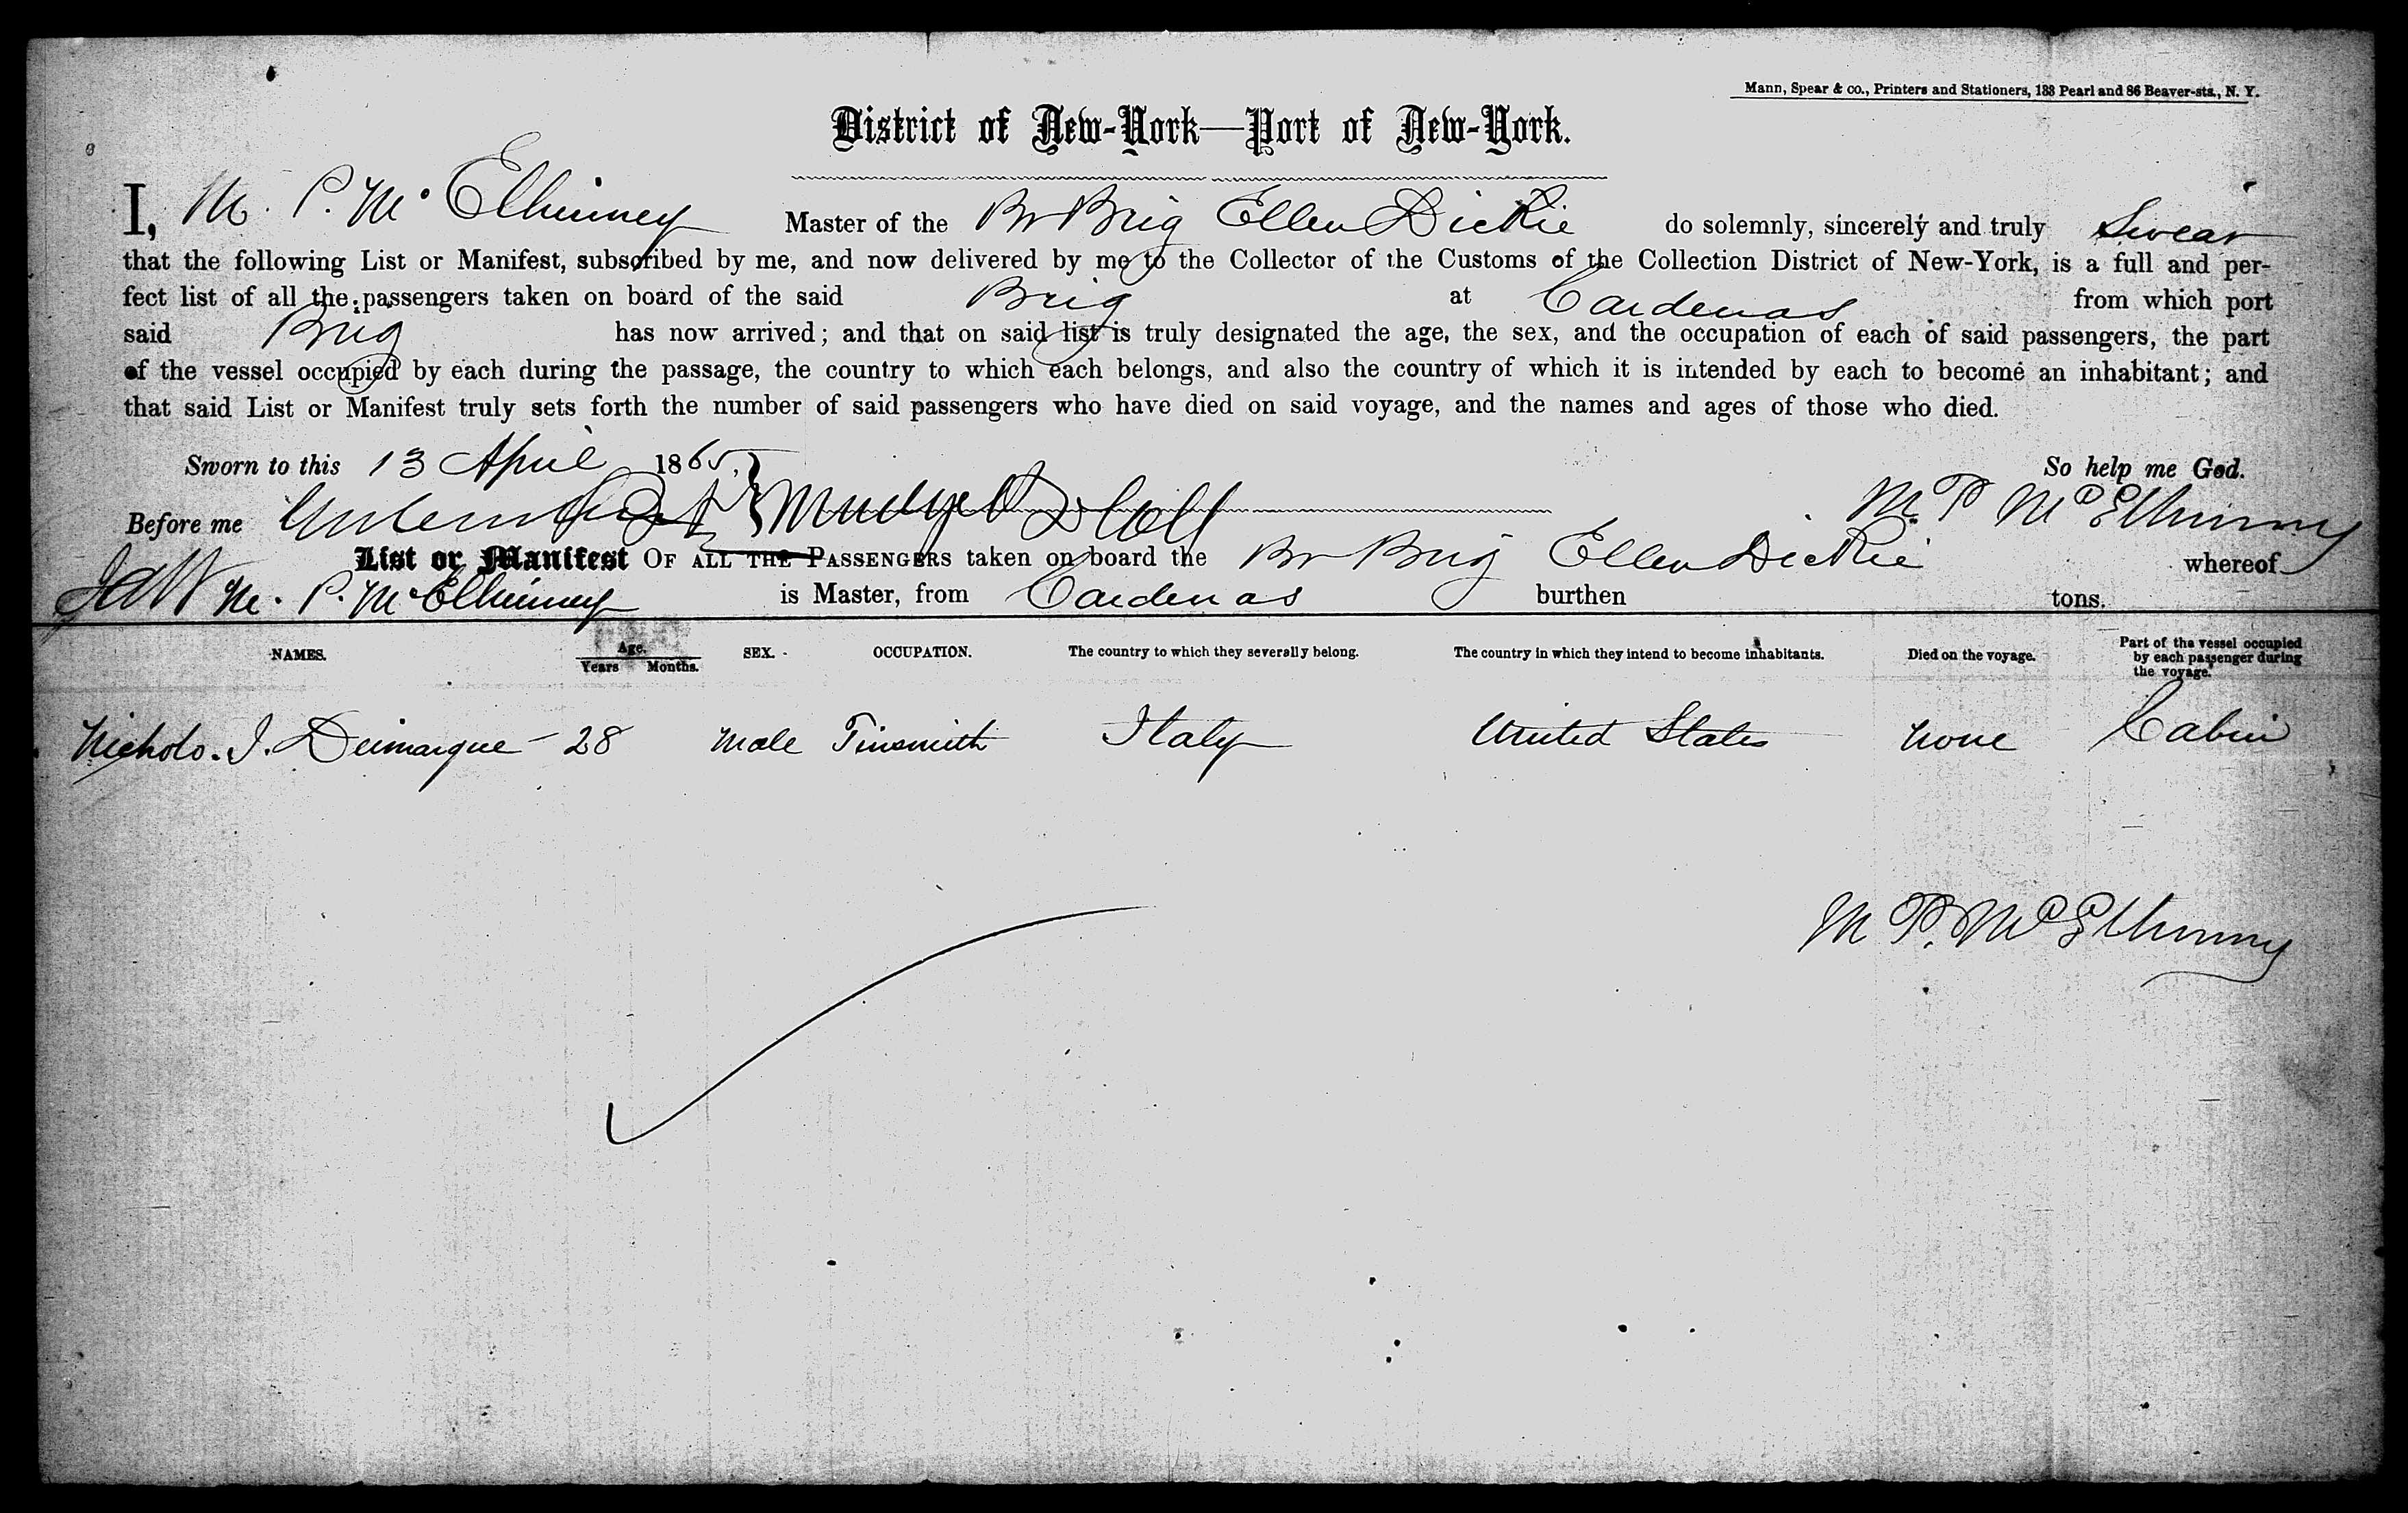 Mann, Spear & co., Printers and Stationers, 133 Pearl and 86 Beaver-sts., N. Y.
District of New-York—Port of New-York.
I, M. P. Mc Elhinney Master of the Br Brig Ellen Dickie do solemnly, sincerely and truly Swear
that the following List or Manifest, subscribed by me, and now delivered by me to the Collector of the Customs of the Collection District of New-York, is a full and per-
fect list of all the passengers taken on board of the said Brig at Cardenas from which port
said Brig has now arrived; and that on said list is truly designated the age, the sex, and the occupation of each of said passengers, the part
of the vessel occupied by each during the passage, the country to which each belongs, and also the country of which it is intended by each to become an inhabitant; and
that said List or Manifest truly sets forth the number of said passengers who have died on said voyage, and the names and ages of those who died.
Sworn to this 13 April 1865, So help me God.
Before me M. P. McElhinney
List or Manifest OF ALL THE PASSENGERS taken on board the Br Brig Ellen Dickie whereof
M. P. Mc Elhinney is Master, from Cardenas burthen tons.
NAMES. Age. Years Months. SEX. OCCUPATION. The country to which they severally belong. The country in which they intend to become inhabitants. Died on the voyage. Part of the vessel occupied by each passenger during the voyage.
Nicholo. J. Deimarque 28 Male Tinsmith Italy United States None Cabin
M P. McElhinney